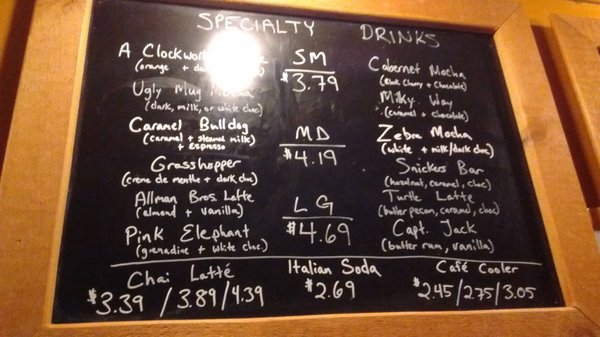 SPECIALTY DRINKS
A Clockwork
(orange + dark
Ugly Mug Mocha
(dark, milk, or white choc)
Caramel Bulldog
(caramel + steamed milk
+ Espresso)
Grasshopper
(crème de menthe + dark choc)
Allman Bros. Latte
(almond + vanilla)
Pink Elephant
(grenadine + white choc)
SM
$3.79
MD
$4.19
LG
$4.69
Cabernet Mocha
(Black Cherry + Chocolate)
Milky Way
(caramel + chocolate)
Zebra Mocha
(white + milk/dark choc)
Snickers Bar
(hazelnut, caramel, choc)
Turtle Latte
(butter pecan, caramel, choc)
Capt. Jack
(butter rum, vanilla)
Chai Latté
$3.39 / 3.89 / 4.39
Italian Soda
$2.69
Café Cooler
$2.45/2.75/3.05